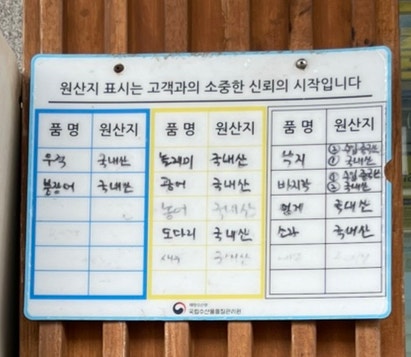 원산지 표시는 고객과의 소중한 신뢰의 시작입니다
품 명 원산지 품 명 원산지 품 명 원산지
우럭 국내산 놀래미 국내산 낙지 ② 수입 중국산 ① 국내산
붕장어 국내산 광어 국내산 바지락 ① 수입 중국산 ② 국내산
농어 국내산 멍게 국내산
도다리 국내산 소라 국내산
국내산
해양수산부
국립수산물품질관리원